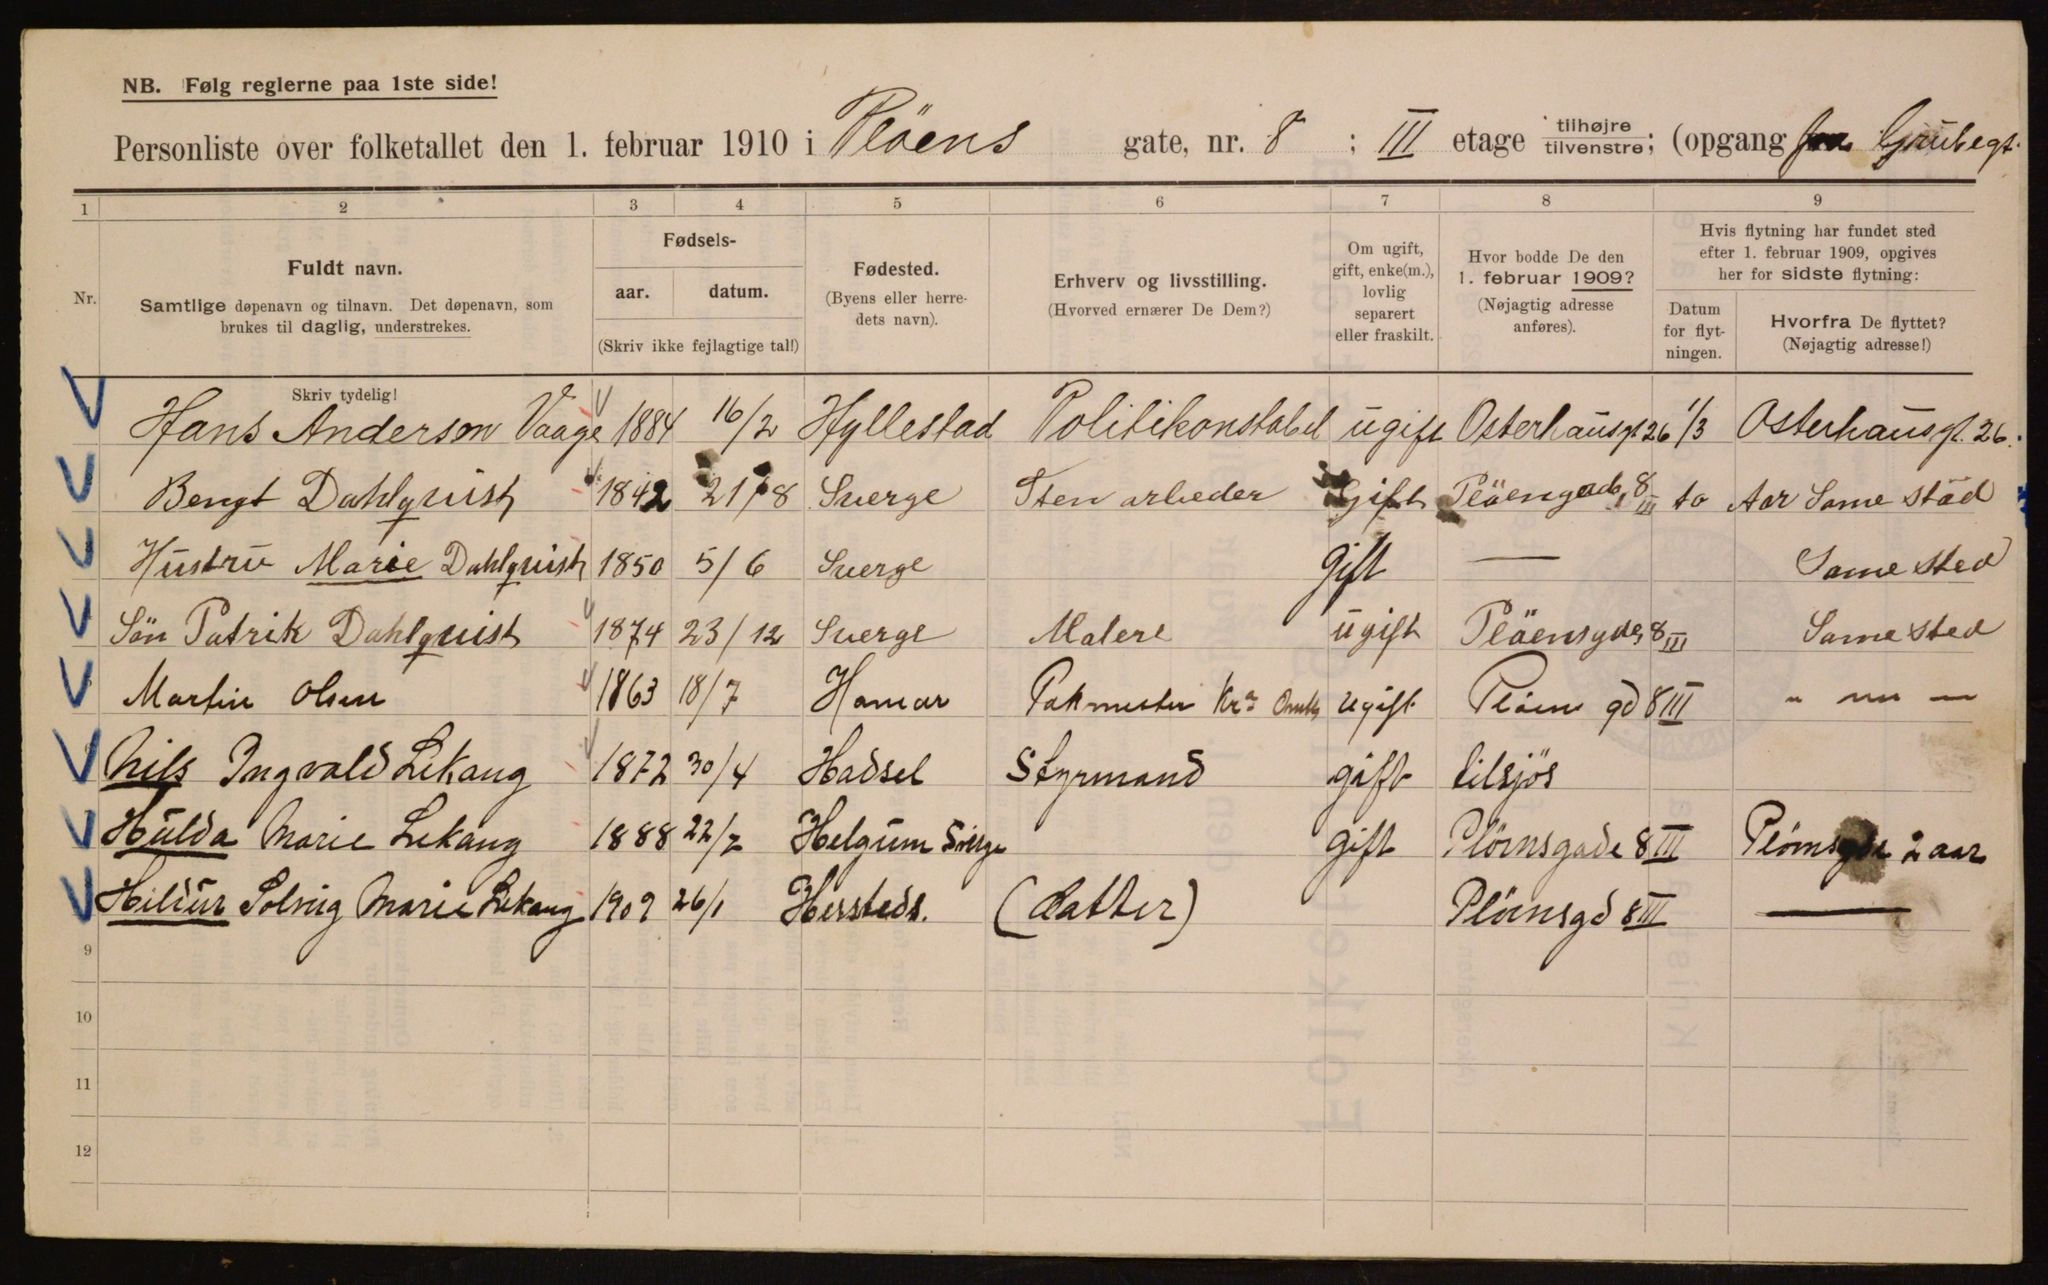 NB. Følg reglerne paa 1ste side!
Personliste over folketallet den 1. februar 1910 i Plöens gate, nr. 8 ; III etage tilhøjre tilvenstre; (opgang fra Grubegt.
1 2 3 4 5 6 7 8 9
Nr.
Fuldt navn.
Samtlige døpenavn og tilnavn. Det døpenavn, som
brukes til daglig, understrekes.
Fødsels-
aar. datum.
(Skriv ikke fejlagtige tal!)
Fødested.
(Byens eller herre-
dets navn).
Erhverv og livsstilling.
(Hvorved ernærer De Dem?)
Om ugift,
gift, enke(m.),
lovlig
separert
eller fraskilt.
Hvor bodde De den
1. februar 1909?
(Nøjagtig adresse
anføres).
Hvis flytning har fundet sted
efter 1. februar 1909, opgives
her for sidste flytning:
Datum
for flyt-
ningen.
Hvorfra De flyttet?
(Nøjagtig adresse!)
Skriv tydelig!
Hans Anderson Vaage 1884 16/2 Hyllestad Politikonstabel ugift Osterhausgt 26 1/3 Osterhausgt. 26.
Bengt Dahlquist 1842 21/8 Sverge Sten arbeder Gift Plöengade 8 III to Aar Same städ
Hustru Marie Dahlquist 1850 5/6 Sverge gift — Same sted
Sön Patrik Dahlquist 1874 23/12 Sverge Malere ugift Plöensgde 8 III Same sted
Martin Olsen 1863 18/7 Hamar Pakmester Kra ugift Pløens gd 8 III " — " —
Nils Ingvald Lekang 1872 30/4 Hadsel Styrmand gift tilsjös
Hulda Marie Lekang 1888 22/7 Helgum Sverge gift Plöensgade 8 III Plöensgde 2 aar
Hildur Solveig Marie Lekang 1909 26/1 Hersteds. (datter) Plöensgd 8 III —
9
10
11
12